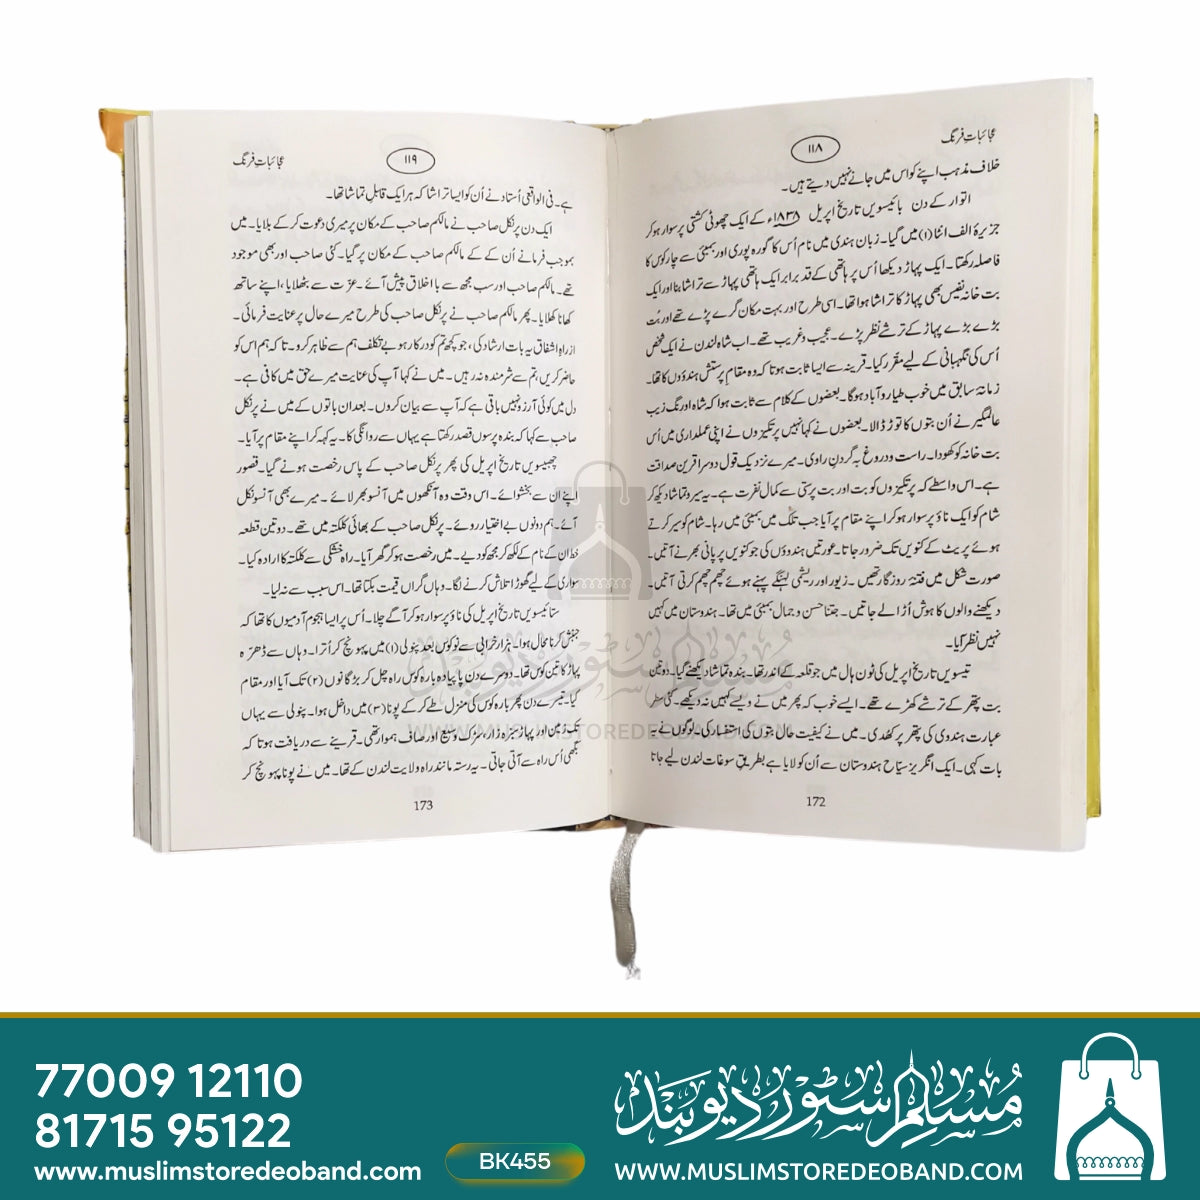 عجائباتِ فرنگ
۱۱۸
خلاف مذہب اپنے کو اس میں جانے نہیں دیتے ہیں۔
اتوار کے دن بائیسویں تاریخ اپریل ۱۸۳۸ء کے ایک چھوٹی کشتی پر سوار ہو کر
جزیرۂ الف انٹا (۱) میں گیا۔ زبان ہندی میں نام اُس کا گورہ پوری اور بمبئی سے چار کوس کا
فاصلہ رکھتا۔ ایک پہاڑ دیکھا اُس پر ہاتھی کے قد برابر ایک ہاتھی پہاڑ سے تراشا بنا اور ایک
بت خانہ نفیس بھی پہاڑ کا تراشا ہوا تھا۔ اسی طرح اور بہت مکان گرے پڑے تھے اور بُت
بڑے بڑے پہاڑ کے ترشے نظر پڑے۔ عجیب و غریب تھے۔ اب شاہ لندن نے ایک شخص
اُس کی نگہبانی کے لیے مقرّر کیا۔ قرینہ سے ایسا ثابت ہوتا کہ وہ مقامِ پرستش ہندوؤں کا تھا۔
زمانۂ سابق میں خوب طیار و آباد ہوگا۔ بعضوں کے کلام سے ثابت ہوا کہ شاہ اورنگ زیب
عالمگیر نے اُن بتوں کا توڑ ڈالا۔ بعضوں نے کہا نہیں پرتکیزوں نے اپنی عملداری میں اُس
بت خانہ کو کھودا۔ راست و دروغ بہ گردنِ راوی۔ میرے نزدیک قول دوسرا قرین صداقت
ہے۔ اس واسطے کہ پرتکیزوں کو بت اور بت پرستی سے کمال نفرت ہے۔ یہ سیر و تماشا دیکھ کر
شام کو ایک ناؤ پر سوار ہو کر اپنے مقام پر آیا جب تلک میں بمبئی میں رہا۔ شام کو سیر کرتے
ہوئے پریٹ کے کنویں تک ضرور جاتا۔ عورتیں ہندوؤں کی جو کنویں پر پانی بھرنے آتیں۔
صورت شکل میں فتنۂ روزگار تھیں۔ زیور اور ریشمی لہنگے پہنے ہوئے چھم چھم کرتی آتیں۔
دیکھنے والوں کا ہوش اُڑا لے جاتیں۔ جتنا حسن و جمال بمبئی میں تھا۔ ہندوستان میں کہیں
نہیں نظر آیا۔
تیسویں تاریخ اپریل کی ٹون ہال میں جو قلعہ کے اندر تھا۔ بندہ تماشا دیکھنے گیا۔ دو تین
بت پتھر کے ترشے کھڑے تھے۔ ایسے خوب کہ پھر میں نے ویسے کہیں نہ دیکھے۔ کئی سطر
عبارت ہندوی کی پتھر پر کھدی۔ میں نے کیفیت حال بتوں کی استفسار کی۔ لوگوں نے یہ
بات کہی۔ ایک انگریز سیّاح ہندوستان سے اُن کو لایا ہے بطریقِ سوغات لندن لیے جاتا
172
عجائباتِ فرنگ
۱۱۹
ہے۔ فی الواقعی اُستاد نے اُن کو ایسا تراشا کہ ہر ایک قابلِ تماشا تھا۔
ایک دن پرنکل صاحب نے مالکم صاحب کے مکان پر میری دعوت کر کے بلایا۔ میں
بموجب فرمانے اُن کے کے مالکم صاحب کے مکان پر گیا۔ کئی صاحب اور بھی موجود
تھے۔ مالکم صاحب اور سب مجھ سے با اخلاق پیش آئے۔ عزّت سے بٹھلایا، اپنے ساتھ
کھانا کھلایا۔ پھر مالکم صاحب نے پرنکل صاحب کی طرح میرے حال پر عنایت فرمائی۔
از راہِ اشفاق یہ بات ارشاد کی، جو کچھ تم کو درکار ہو بے تکلف ہم سے ظاہر کرو۔ تا کہ ہم اس کو
حاضر کریں، تم سے شرمندہ نہ رہیں۔ میں نے کہا آپ کی عنایت میرے حق میں کافی ہے۔
دل میں کوئی آرزو نہیں باقی ہے کہ آپ سے بیان کروں۔ بعد ان باتوں کے میں نے پرنکل
صاحب سے کہا کہ بندہ پرسوں قصد رکھتا ہے یہاں سے روانگی کا۔ یہ کہہ کر اپنے مقام پر آیا۔
چھبیسویں تاریخ اپریل کی پھر پرنکل صاحب کے پاس رخصت ہونے گیا۔ قصور
اپنے ان سے بخشوائے۔ اس وقت وہ آنکھوں میں آنسو بھر لائے۔ میرے بھی آنسو نکل
آئے۔ ہم دونوں بے اختیار روئے۔ پرنکل صاحب کے بھائی کلکتہ میں تھے۔ دو تین قطعہ
خط ان کے نام کے لکھ کر مجھ کو دیے۔ میں رخصت ہو کر گھر آیا۔ راہِ خشکی سے کلکتہ کا ارادہ کیا۔
سواری کے لیے گھوڑا تلاش کرنے لگا۔ وہاں گراں قیمت بکتا تھا۔ اس سبب سے نہ لیا۔
ستائیسویں تاریخ اپریل کی ناؤ پر سوار ہو کر آگے چلا۔ اُس پر ایسا ہجوم آدمیوں کا تھا کہ
جنبش کرنا محال ہوا۔ ہزار خرابی سے نو کوس بعد پنولی (۱) میں پہونچ کر اُترا۔ وہاں سے ڈھرہ
پہاڑ کا تین کوس تھا۔ دوسرے دن پا پیادہ بارہ کوس راہ چل کر بڑگانوں (۲) تک آیا اور مقام
کیا۔ تیسرے دن پھر بارہ کوس کی منزل طے کر کے پونا (۳) میں داخل ہوا۔ پنولی سے یہاں
تک زمین اور پہاڑ سبزہ زار، سڑک وسیع اور صاف ہموار تھی۔ قرینے سے دریافت ہوتا کہ
بگھی اُس راہ سے آتی جاتی۔ یہ رستہ مانند راہِ ولایت لندن کے تھا۔ میں نے پونا پہونچ کر
173
مسلم سٹور دیوبند
WWW.MUSLIMSTOREDEOBAND.COM
77009 12110
81715 95122
www.muslimstoredeoband.com
BK455
مسلم سٹور دیوبند
WWW.MUSLIMSTOREDEOBAND.COM